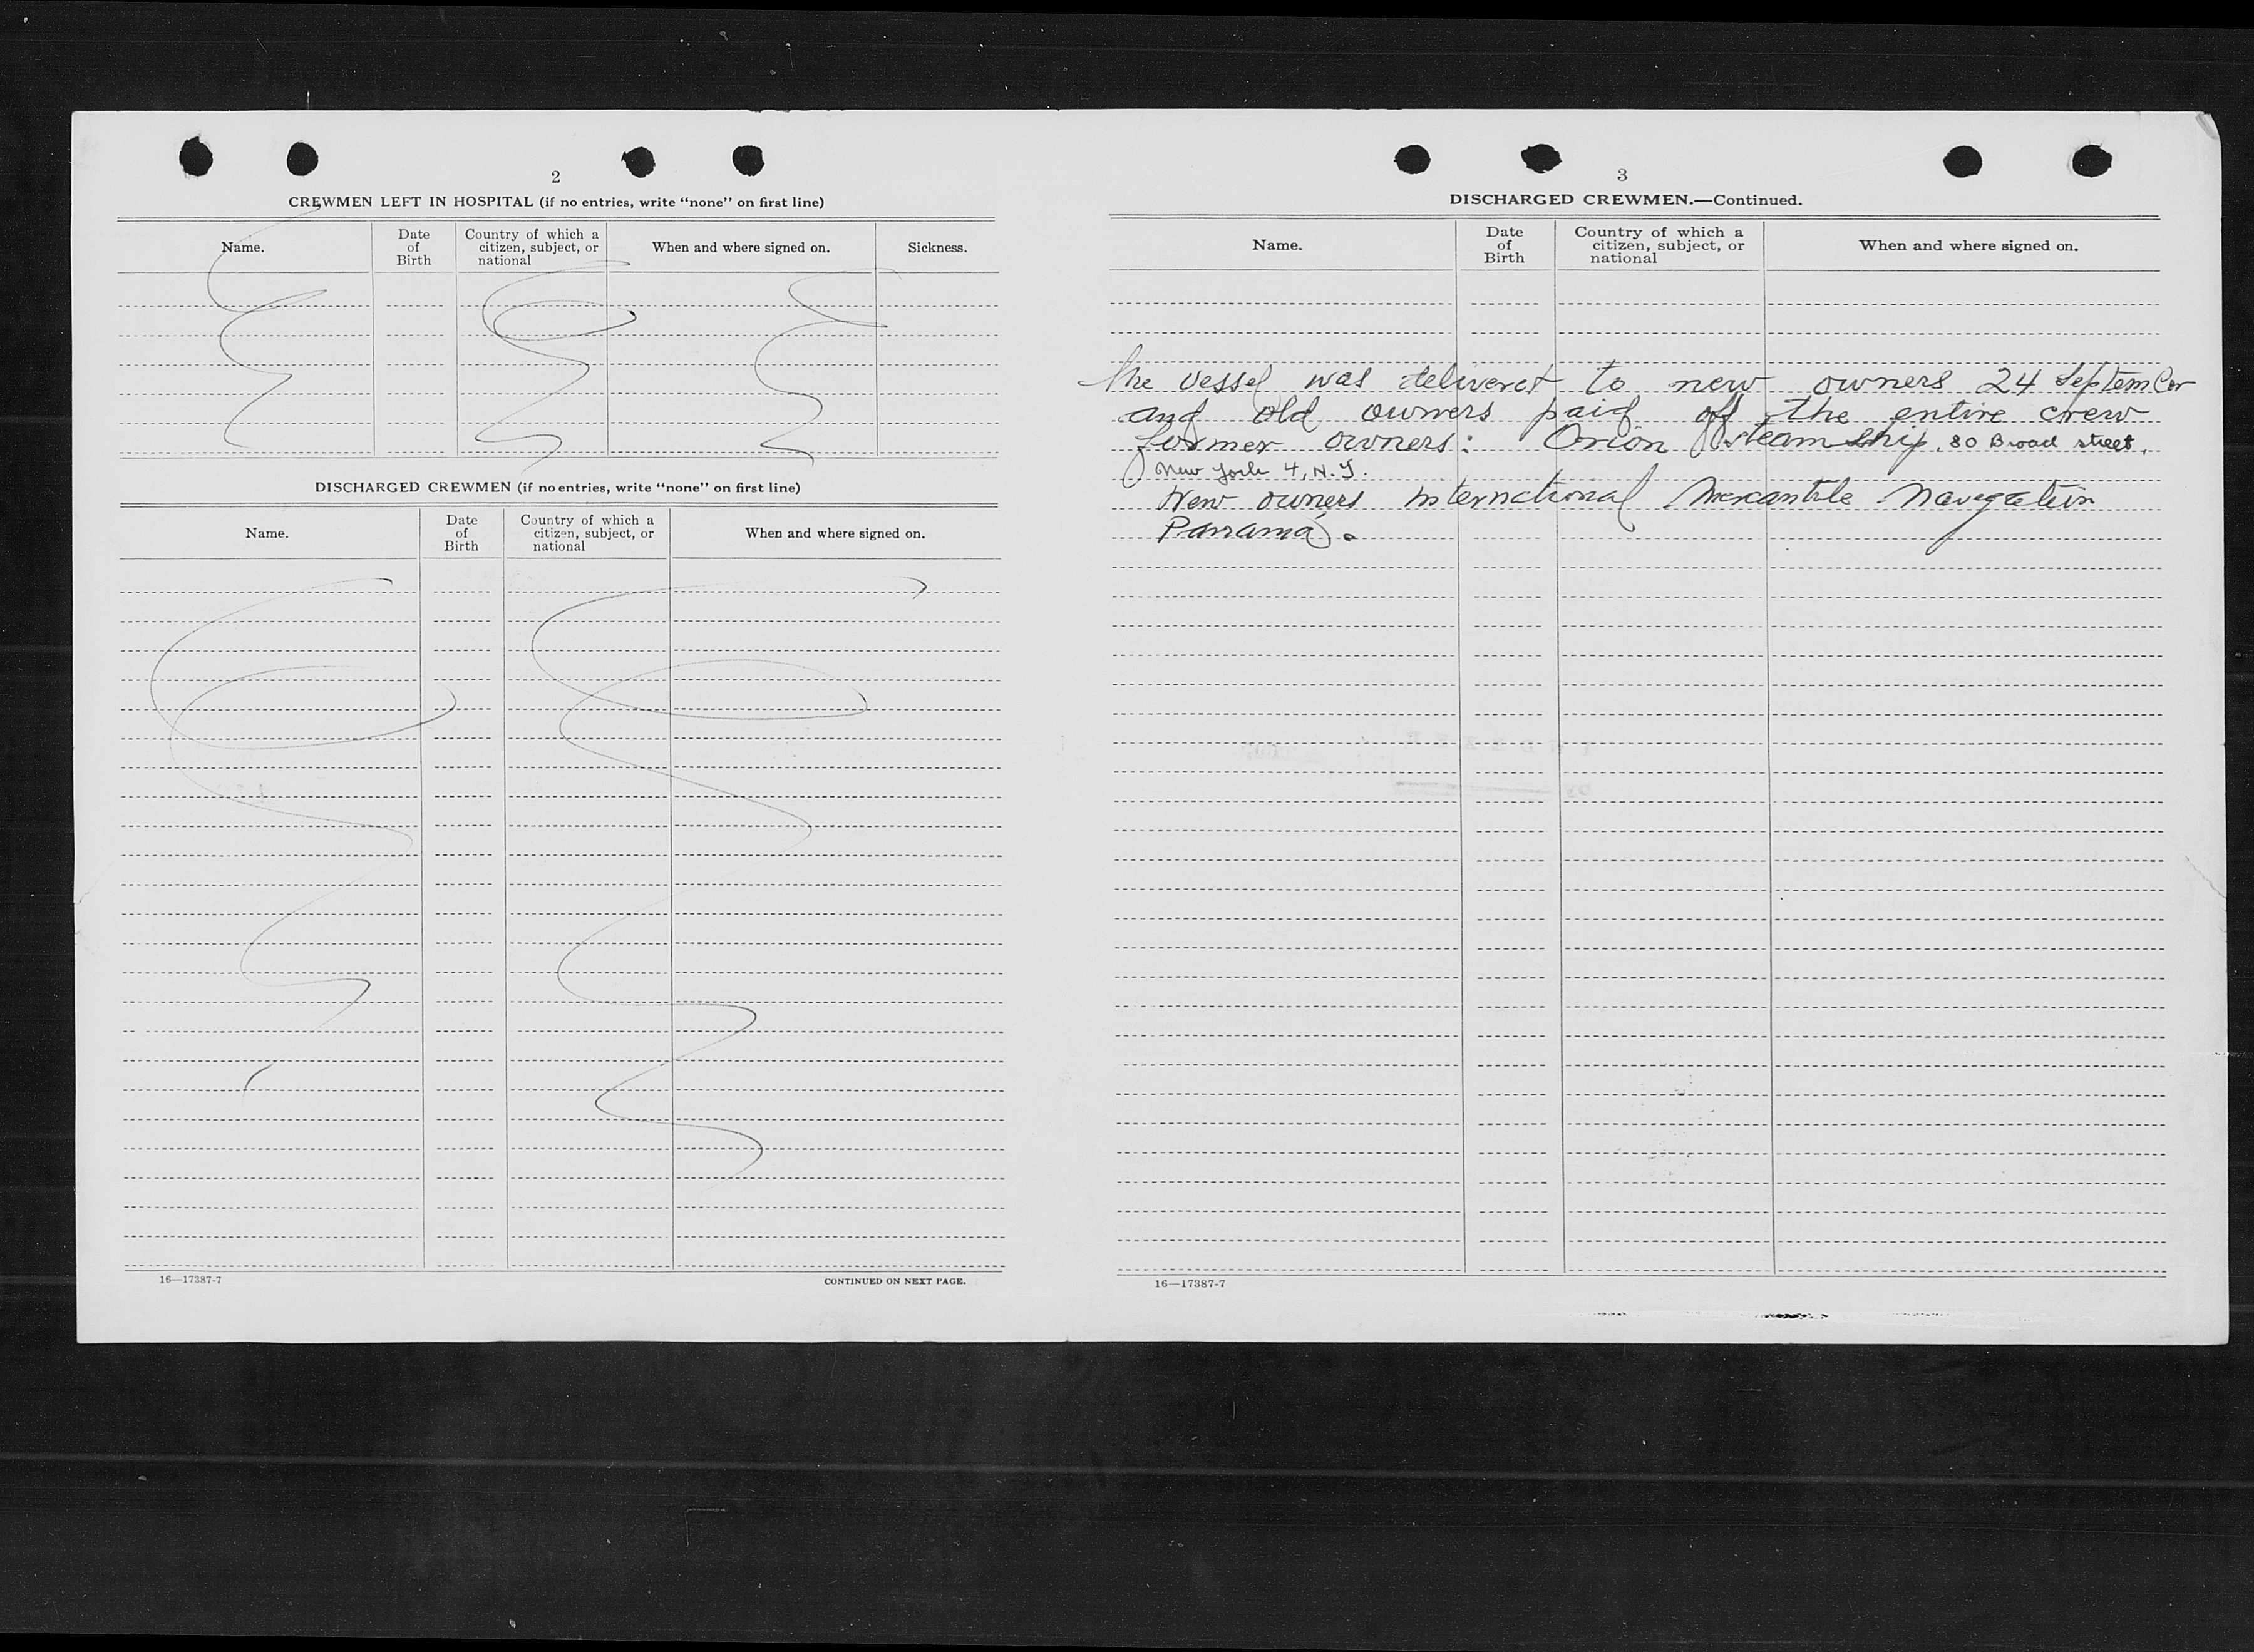 2
CREWMEN LEFT IN HOSPITAL (if no entries, write “none” on first line)
Name.
Date of Birth
Country of which a citizen, subject, or national
When and where signed on.
Sickness.
DISCHARGED CREWMEN (if no entries, write “none” on first line)
Name.
Date of Birth
Country of which a citizen, subject, or national
When and where signed on.
16—17387-7
CONTINUED ON NEXT PAGE.
3
DISCHARGED CREWMEN.—Continued.
Name.
Date of Birth
Country of which a citizen, subject, or national
When and where signed on.
the vessel was deliveret to new owners 24 September
and old owners paid off the entire crew
former owners: Orion Steamship. 80 Broad street.
New York 4, N.Y.
New owners International Mercantile Navegatein
Panamá.
16—17387-7